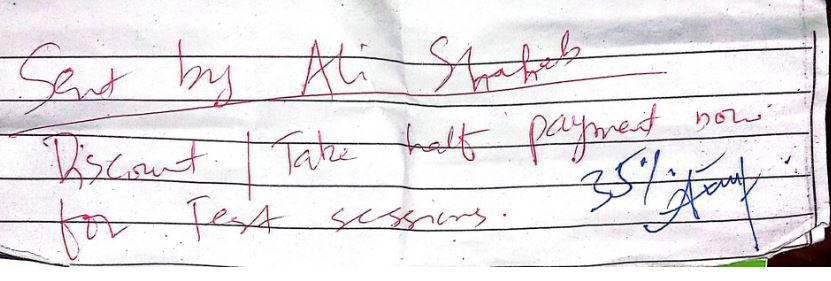 Sent by Ali Shaheb
Discount | Take half payment now
for Test sessions.
35%